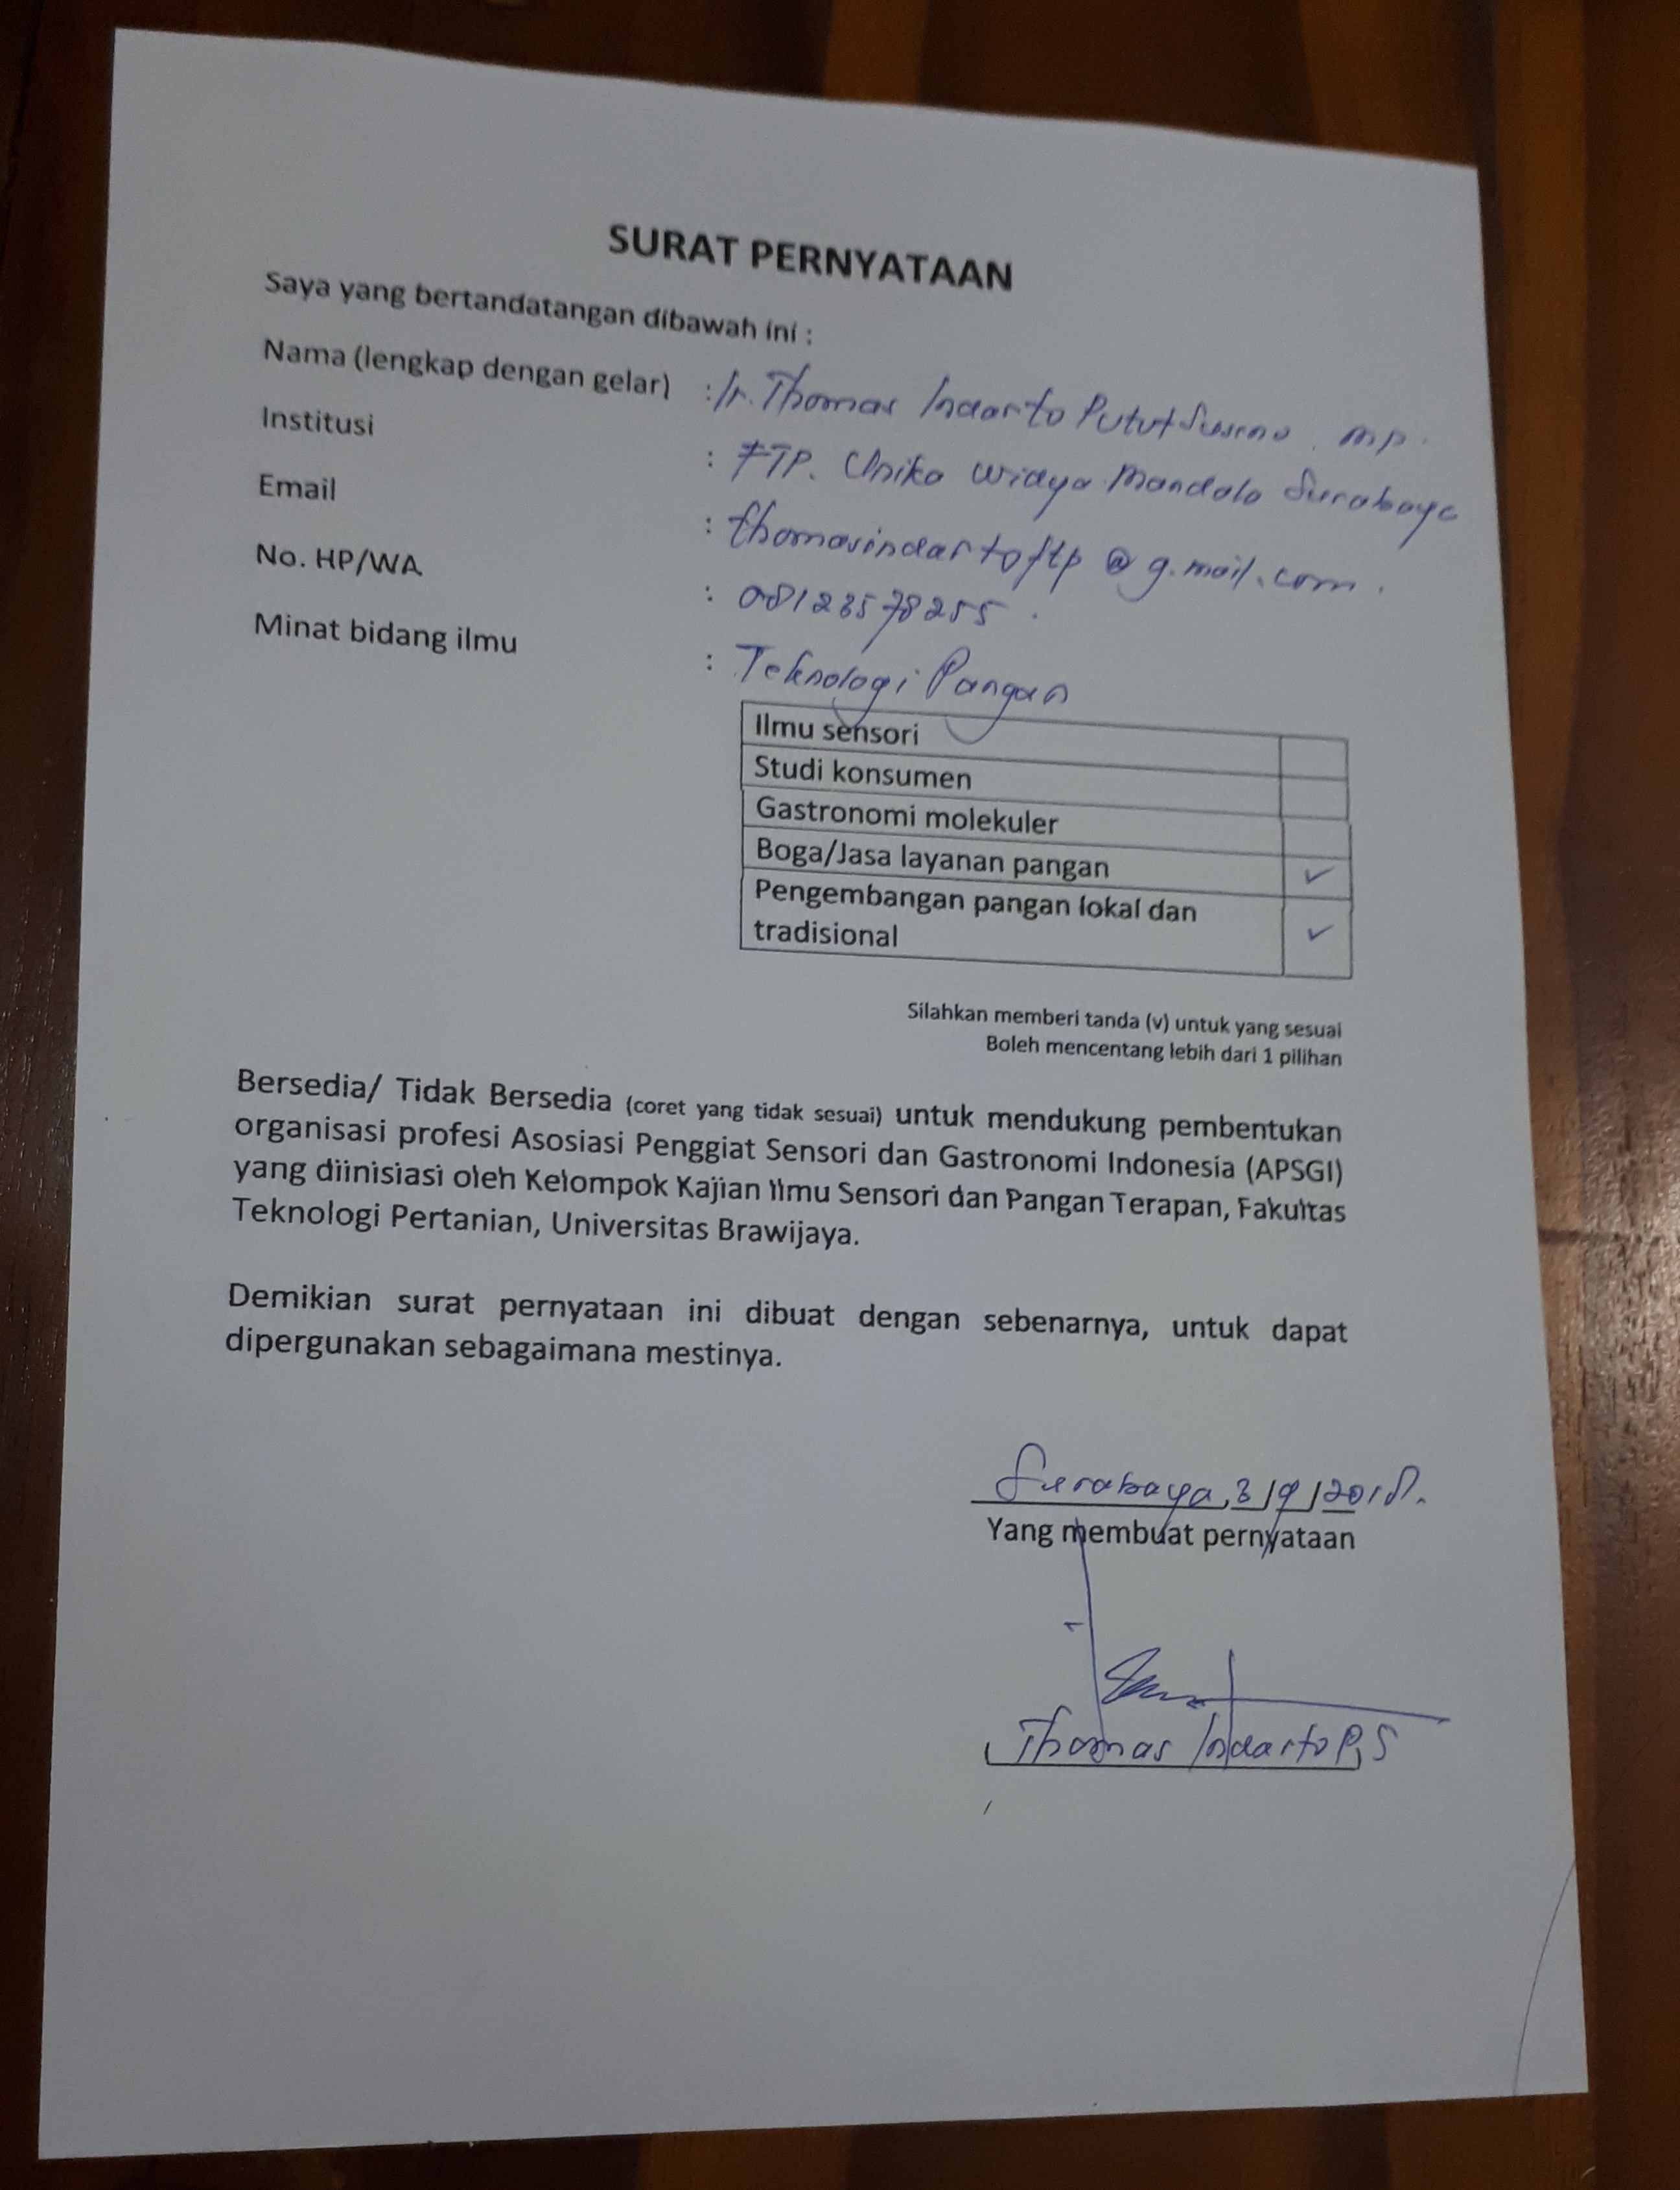 SURAT PERNYATAAN
Saya yang bertandatangan dibawah ini :
Nama (lengkap dengan gelar) : Ir. Thomas Indarto Putut Suseno, MP.
Institusi : FTP. Unika Widya Mandala Surabaya
Email : thomasindartoftp@g.mail.com.
No. HP/WA : 08123578255.
Minat bidang ilmu : Teknologi Pangan
Ilmu sensori
Studi konsumen
Gastronomi molekuler
Boga/Jasa layanan pangan ✓
Pengembangan pangan lokal dan
tradisional ✓
Silahkan memberi tanda (v) untuk yang sesuai
Boleh mencentang lebih dari 1 pilihan
Bersedia/ Tidak Bersedia (coret yang tidak sesuai) untuk mendukung pembentukan
organisasi profesi Asosiasi Penggiat Sensori dan Gastronomi Indonesia (APSGI)
yang diinisiasi oleh Kelompok Kajian Ilmu Sensori dan Pangan Terapan, Fakultas
Teknologi Pertanian, Universitas Brawijaya.
Demikian surat pernyataan ini dibuat dengan sebenarnya, untuk dapat
dipergunakan sebagaimana mestinya.
Surabaya, 3/9/2018.
Yang membuat pernyataan
Thomas Indarto P,S